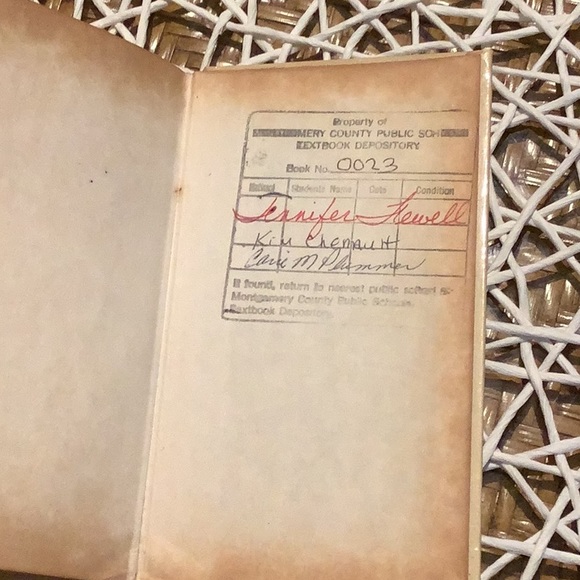 Property of
MERY COUNTY PUBLIC SCH
TEXTBOOK DEPOSITORY
Book No. 0023
School Students Name Date Condition
Jennifer Flewell
Kim Chenault
Carie M Plummer
If found, return to nearest public school or
Montgomery County Public Schools,
Textbook Depository.